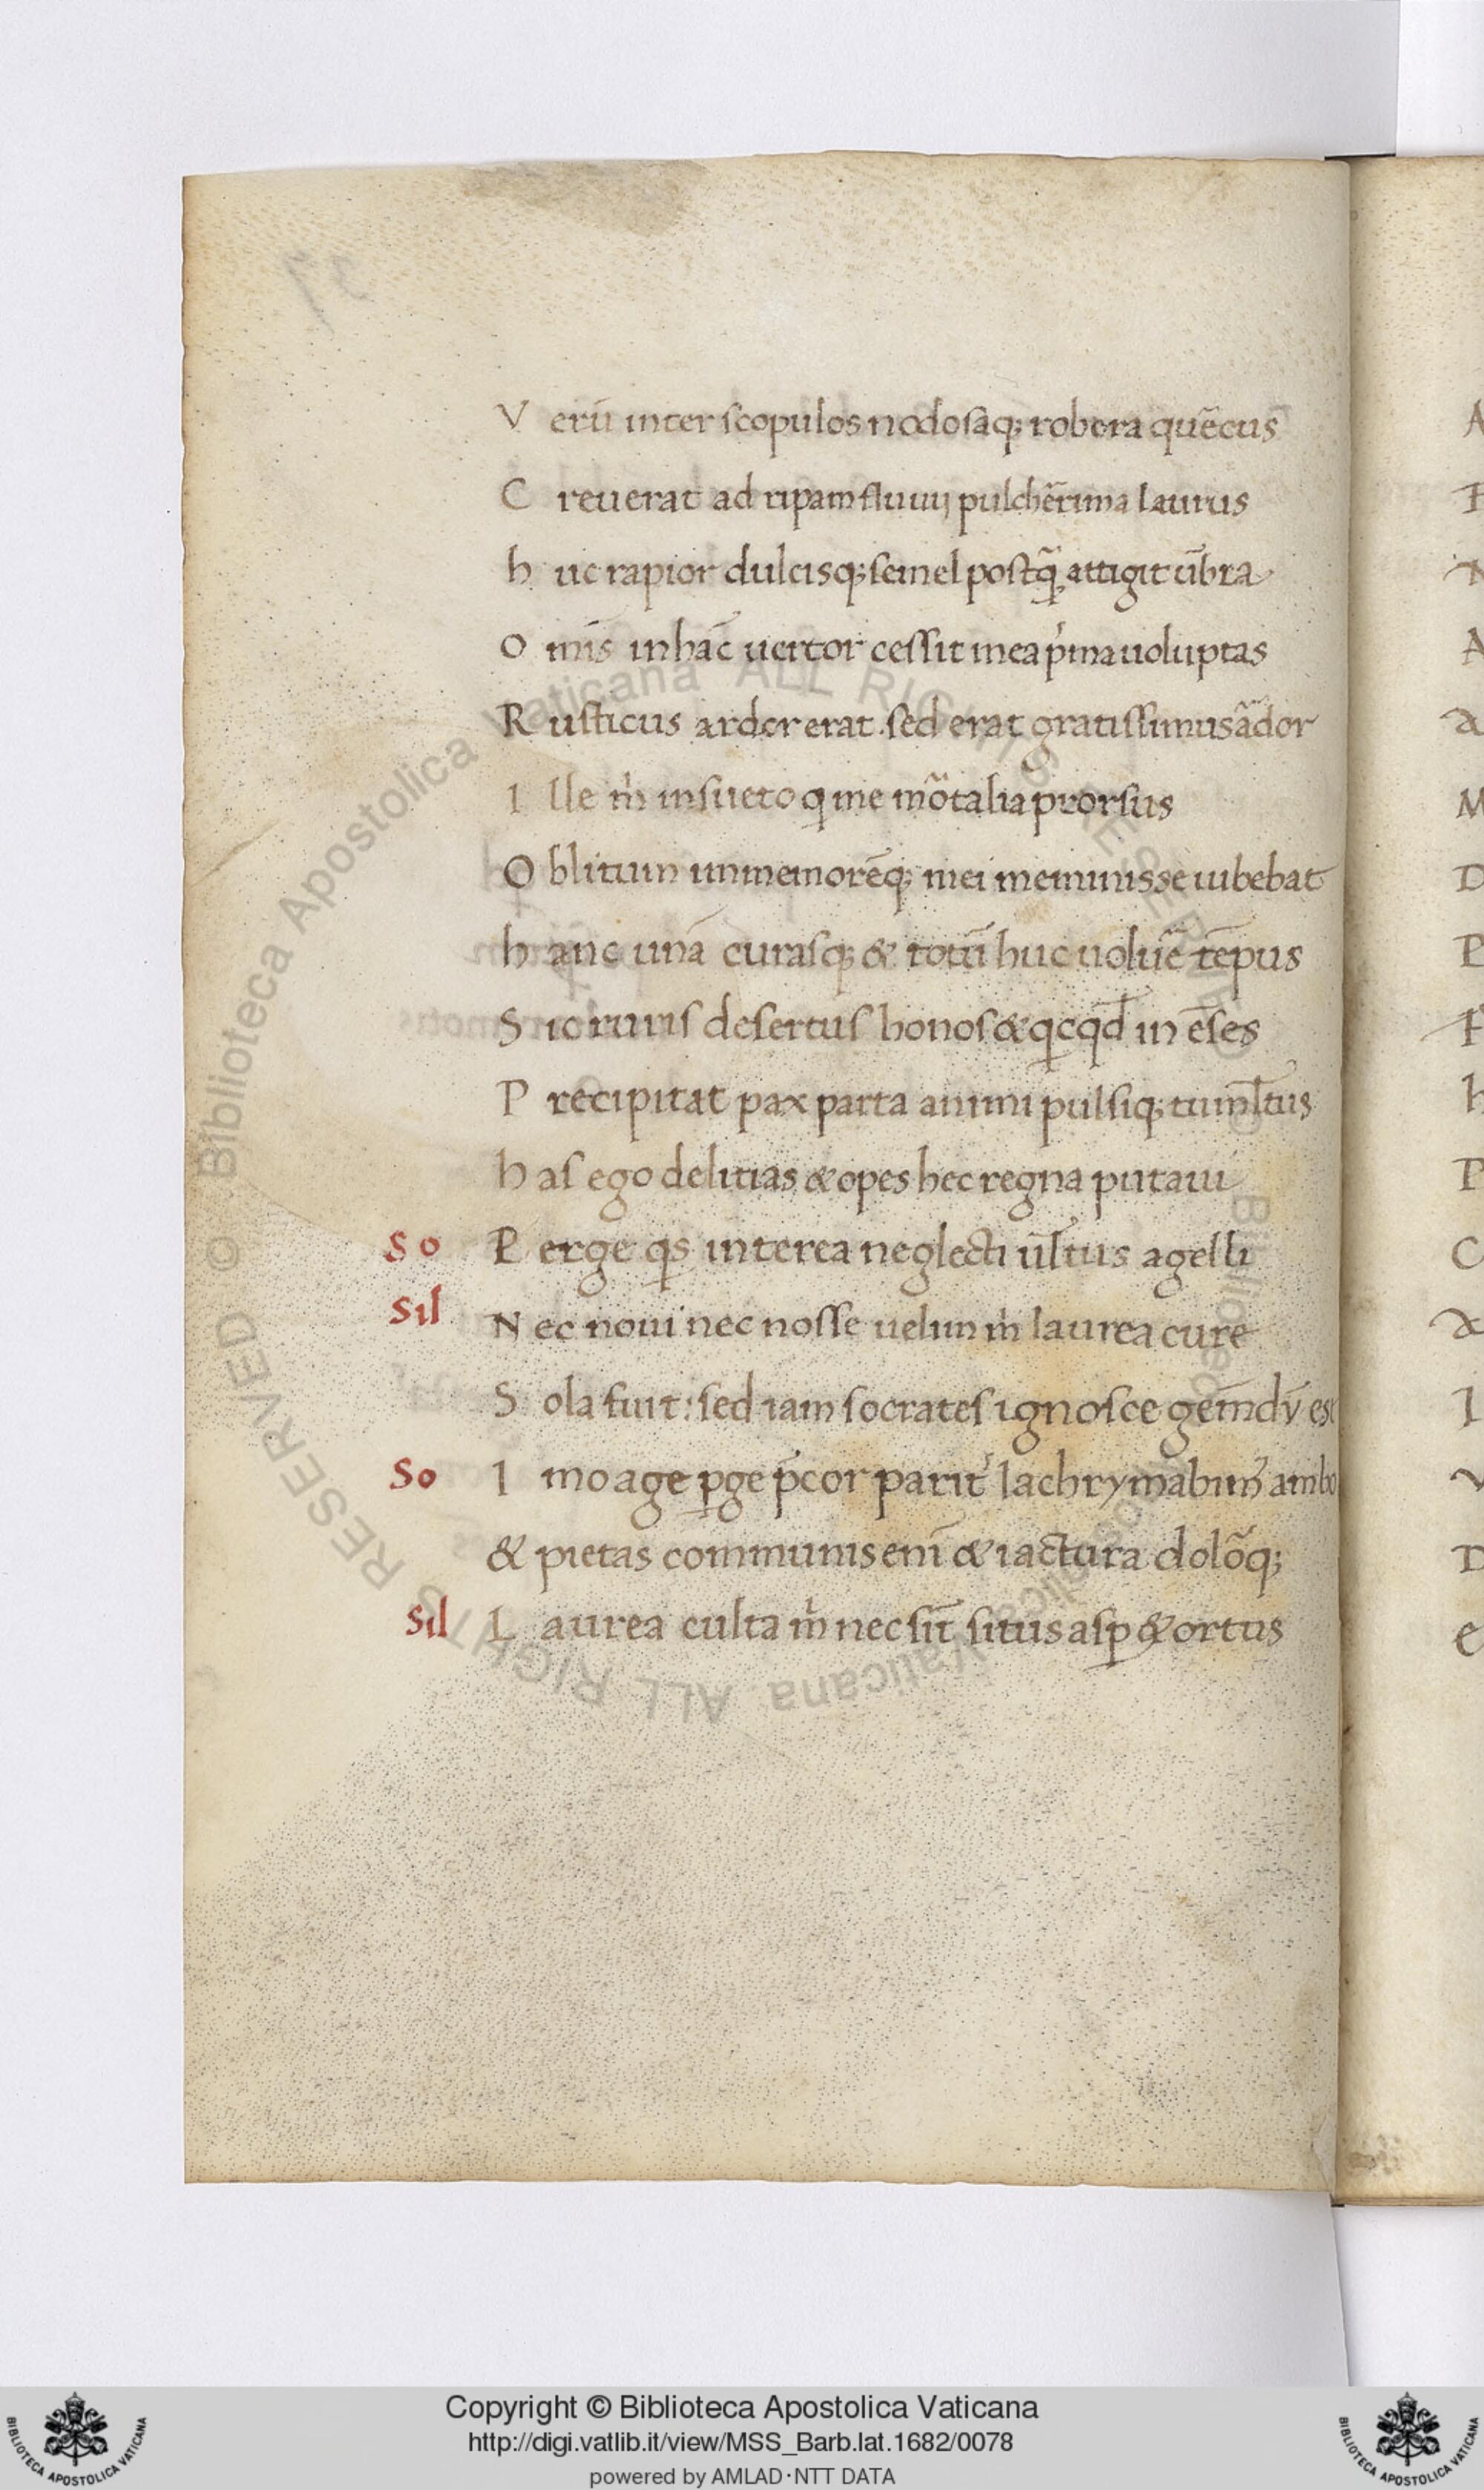 V erū inter scopulos nodosaq; robora quēcus
C reuerat ad ripam fluuij pulchērima laurus
h uc rapior dulcisq; semel postq̄ attigit ūbra
O mīs in hāc uertor cessit mea p̓ma uoluptas
R usticus ardor erat. sed erat gratissimus ādor
I lle m̓ insueto q me mōtalia prorsus
O blitum immemorēq; mei meminisse iubebat
h anc unā curasq; & totū huc uoluē tēpus
S ic ruris desertus honos & qcqd̄ in ēses
P recipitat pax parta animi pulsiq; tuml̄tus
h as ego delitias & opes hec regna putaui
So P erge qs interea neglecti ul̄tus agelli
Sil N ec noui nec nosse uelim m̓ laurea cure
S ola fuit: sed iam socrates ignosce gemdū est
So I mo age ꝑge p̄cor parit̓ lachrymabim᾽ ambo
& pietas communis enī & iactura dolōq;
Sil L aurea culta m̓ nec sit̄ situs asꝑ & ortus
Copyright © Biblioteca Apostolica Vaticana
http://digi.vatlib.it/view/MSS_Barb.lat.1682/0078
powered by AMLAD·NTT DATA
BIBLIOTECA APOSTOLICA VATICANA
BIBLIOTECA APOSTOLICA VATICANA